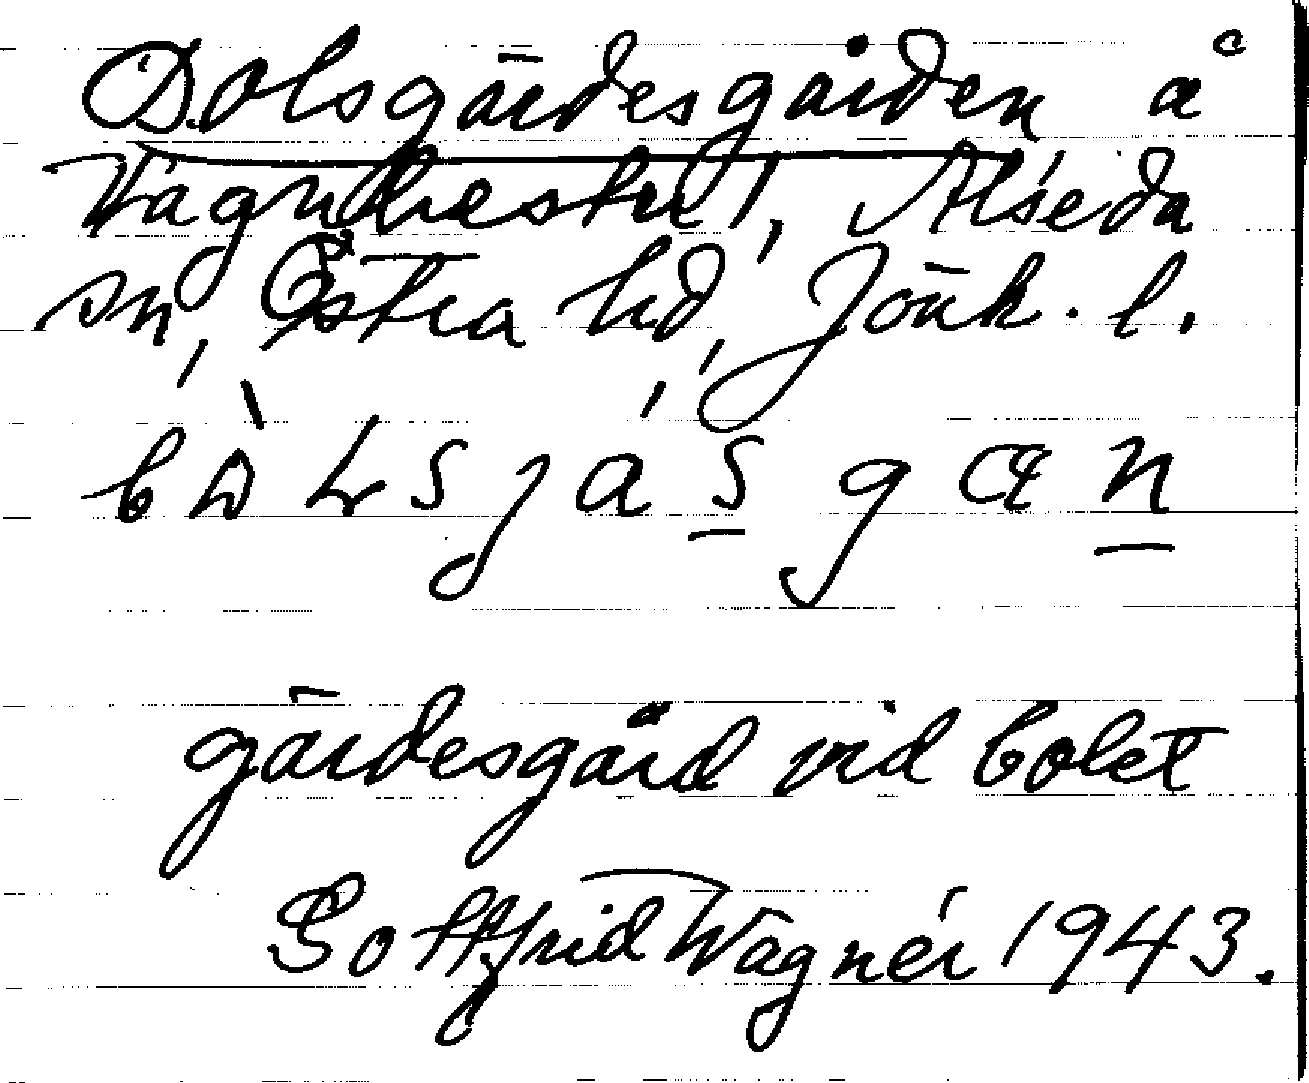 Bolsgärdesgården å
Vagnhestret, Alseda
sn, Östra hd, Jönk. l.
gärdesgård vid bolet
Gottfrid Wagnér 1943.